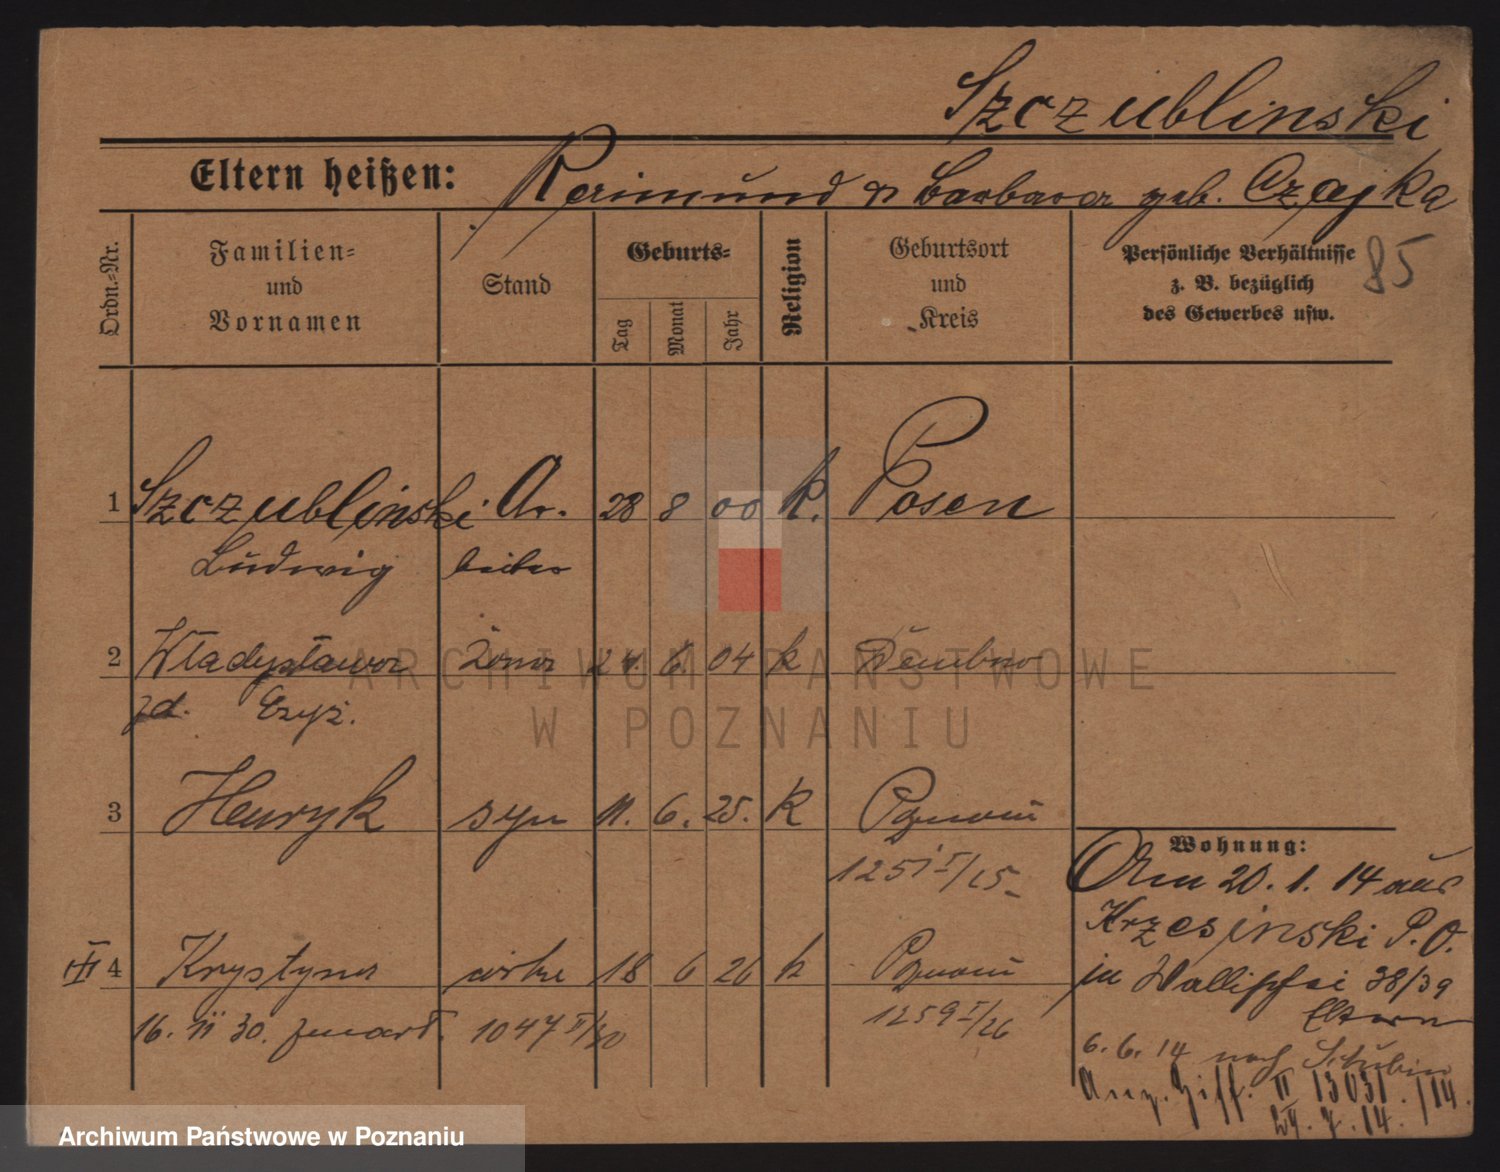 Szczublinski
Eltern heißen: Raimund & Barbara geb. Czajka
85
Ordn.-Nr.
Familien- und Vornamen
Stand
Geburts-
Tag
Monat
Jahr
Religion
Geburtsort und Kreis
Persönliche Verhältnisse z. B. bezüglich des Gewerbes usw.
1 Szczublinski Ar- 28 8 00 k. Posen
Ludwig beiter
2 Władysława żona 24. 6. 04 k Dembno
zd.
3 Henryk syn 11. 6. 25. k Poznań
1251
4 Krystyna córka 18 6 26 k Poznań
1259 I/26
16. II 30. 1047 II/30
Wohnung:
Am 20. 1. 14 aus
Krzesinski P. O.
in Wallischei 38/39
Eltern
6. 6. 14 nach Schubin
Anz. Ziff. II 13031./14.
ARCHIWUM PAŃSTWOWE
W POZNANIU
Archiwum Państwowe w Poznaniu